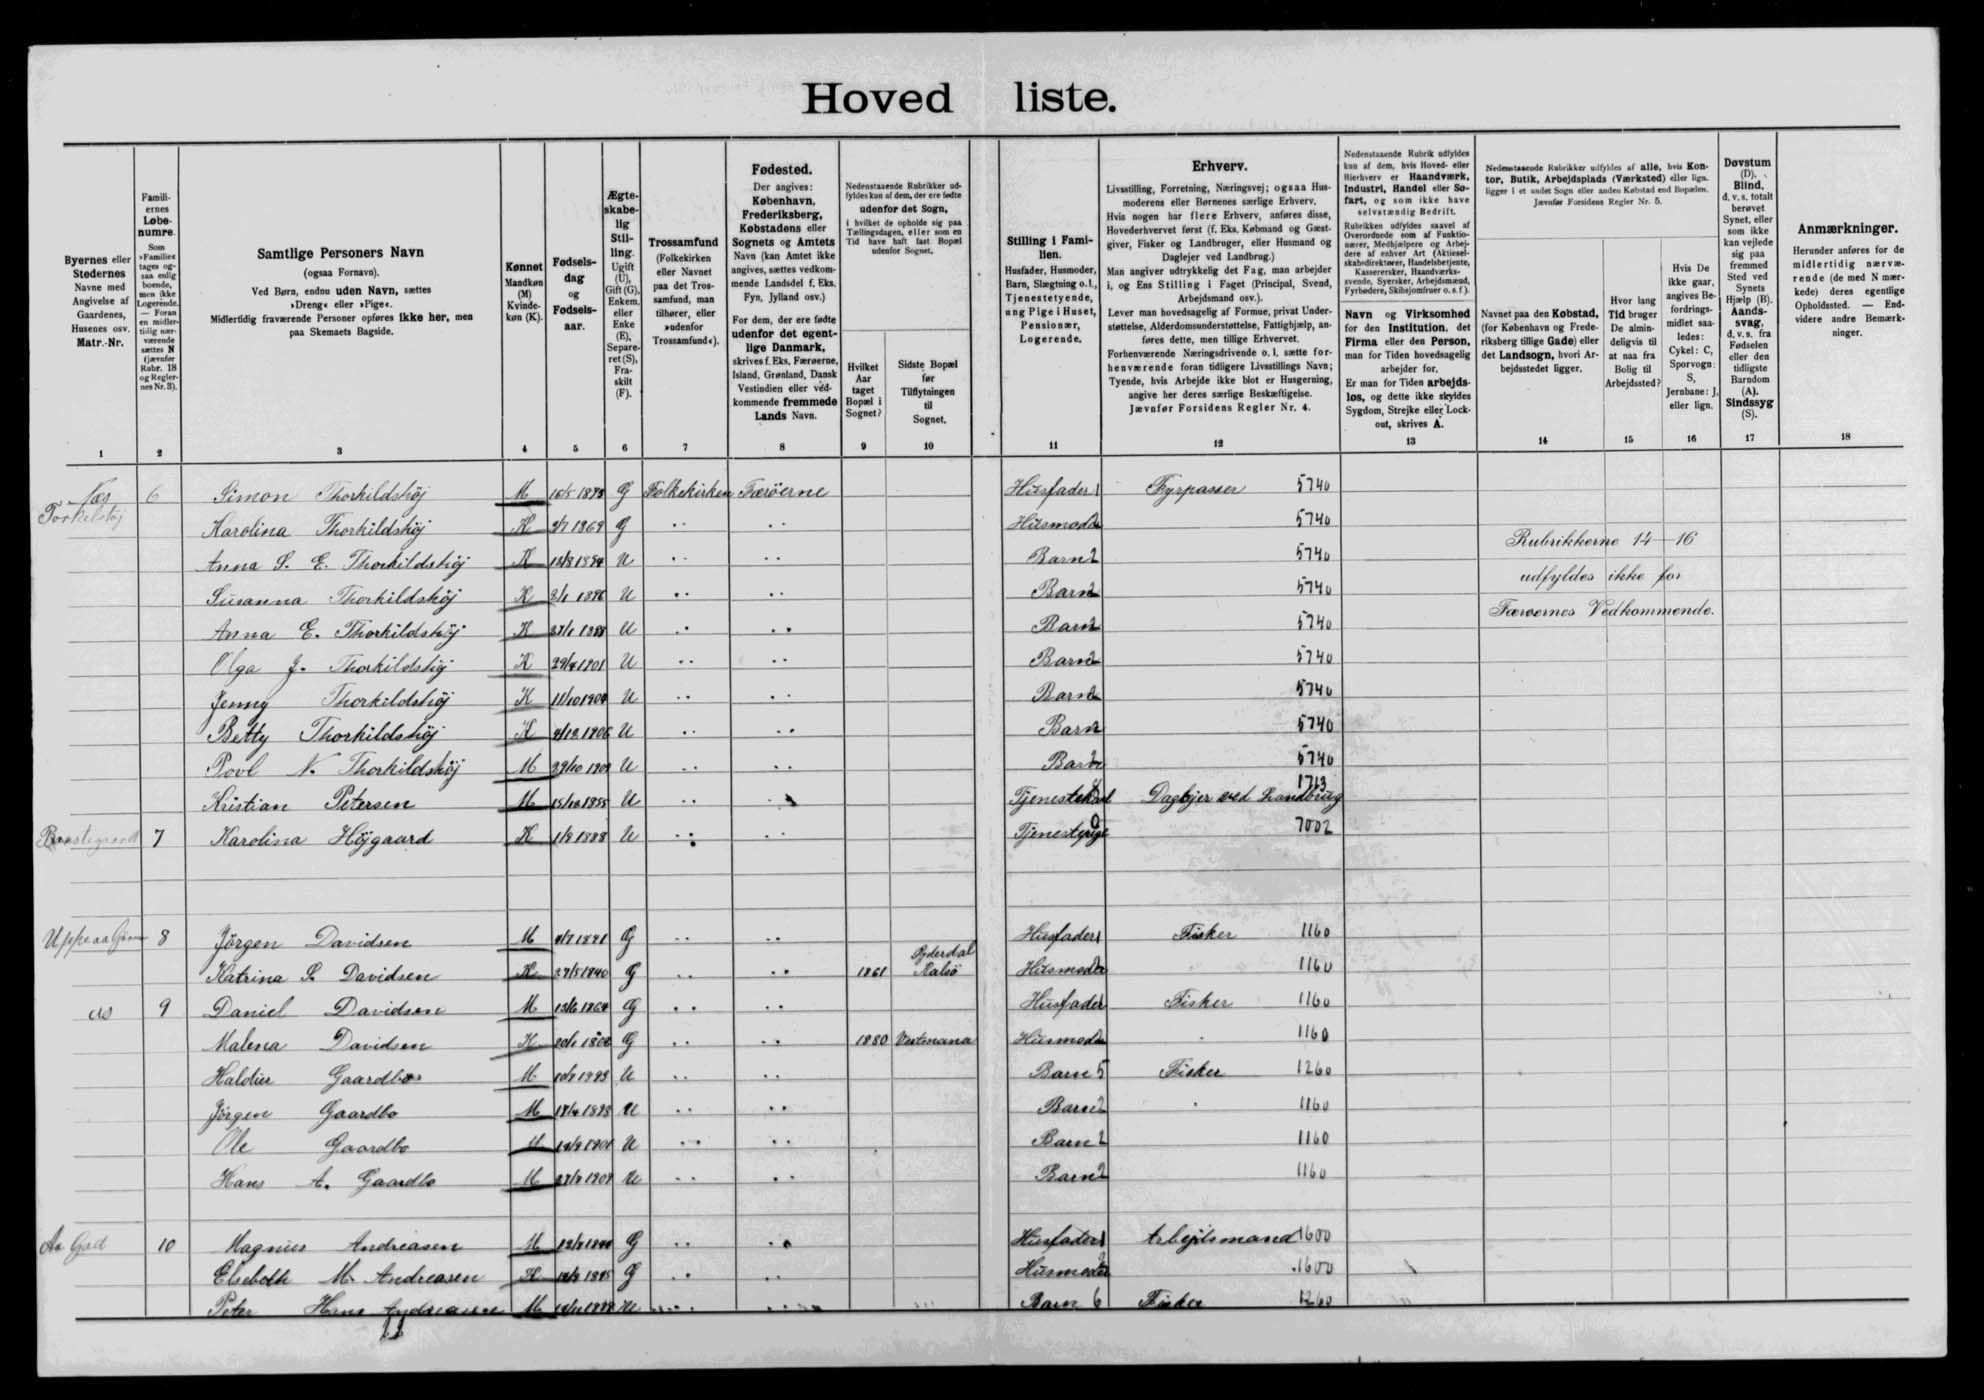 Hoved liste.
Byernes eller
Stedernes
Navne med
Angivelse af
Gaardenes,
Husenes osv.
Matr.-Nr.
Famili-
ernes
Løbe-
numre.
Som
»Familie«
tages og-
saa enlig
boende,
men ikke
Logerende.
— Foran
en midler-
tidig nær-
værende
sættes N
(jævnfør
Rubr. 18
og Regler-
nes Nr. 3).
Samtlige Personers Navn
(ogsaa Fornavn).
Ved Børn, endnu uden Navn, sættes
»Dreng« eller »Pige«.
Midlertidig fraværende Personer opføres ikke her, men
paa Skemaets Bagside.
Kønnet
Mandkøn
(M)
Kvinde-
køn (K).
Fødsels-
dag
og
Fødsels-
aar.
Ægte-
skabe-
lig
Stil-
ling.
Ugift
(U),
Gift (G),
Enkem.
eller
Enke
(E),
Separe-
ret (S),
Fra-
skilt
(F).
Trossamfund
(Folkekirken
eller Navnet
paa det Tros-
samfund, man
tilhører, eller
»udenfor
Trossamfund«).
Fødested.
Der angives:
København,
Frederiksberg,
Købstadens eller
Sognets og Amtets
Navn (kan Amtet ikke
angives, sættes vedkom-
mende Landsdel f. Eks.
Fyn, Jylland osv.)
For dem, der ere fødte
udenfor det egent-
lige Danmark,
skrives f. Eks. Færøerne,
Island, Grønland, Dansk
Vestindien eller ved-
kommende fremmede
Lands Navn.
Nedenstaaende Rubrikker ud-
fyldes kun af dem, der ere fødte
udenfor det Sogn,
i hvilket de opholde sig paa
Tællingsdagen, eller som en
Tid have haft fast Bopæl
udenfor Sognet.
Hvilket
Aar
taget
Bopæl i
Sognet?
Sidste Bopæl
før
Tilflytningen
til
Sognet.
Stilling i Fami-
lien.
Husfader, Husmoder,
Barn, Slægtning o. l.,
Tjenestetyende,
ung Pige i Huset,
Pensionær,
Logerende.
Erhverv.
Livsstilling, Forretning, Næringsvej; ogsaa Hus-
moderens eller Børnenes særlige Erhverv.
Hvis nogen har flere Erhverv, anføres disse,
Hovederhvervet først (f. Eks. Købmand og Gæst-
giver, Fisker og Landbruger, eller Husmand og
Daglejer ved Landbrug.)
Man angiver udtrykkelig det Fag, man arbejder
i, og Ens Stilling i Faget (Principal, Svend,
Arbejdsmand osv.).
Lever man hovedsagelig af Formue, privat Under-
støttelse, Alderdomsunderstøttelse, Fattighjælp, an-
føres dette, men tillige Erhvervet.
Forhenværende Næringsdrivende o. l. sætte for-
henværende foran tidligere Livsstillings Navn;
Tyende, hvis Arbejde ikke blot er Husgerning,
angive her deres særlige Beskæftigelse.
Jævnfør Forsidens Regler Nr. 4.
Nedenstaaende Rubrik udfyldes
kun af dem, hvis Hoved- eller
Bierhverv er Haandværk,
Industri, Handel eller Sø-
fart, og som ikke have
selvstændig Bedrift.
Rubrikken udfyldes saavel af
Overordnede som af Funktio-
nærer, Medhjælpere og Arbej-
dere af enhver Art (Aktiesel-
skabsdirektører, Handelsbetjente,
Kasserersker, Haandværks-
svende, Syersker, Arbejdsmænd,
Fyrbødere, Skibsjomfruer o. s. f.).
Navn og Virksomhed
for den Institution, det
Firma eller den Person,
man for Tiden hovedsagelig
arbejder for.
Er man for Tiden arbejds-
løs, og dette ikke skyldes
Sygdom, Strejke eller Lock-
out, skrives A.
Nedenstaaende Rubrikker udfyldes af alle, hvis Kon-
tor, Butik, Arbejdsplads (Værksted) eller lign.
ligger i et andet Sogn eller anden Købstad end Bopælen.
Jævnfør Forsidens Regler Nr. 5.
Navnet paa den Købstad,
(for København og Frede-
riksberg tillige Gade) eller
det Landsogn, hvori Ar-
bejdsstedet ligger.
Hvor lang
Tid bruger
De almin-
deligvis til
at naa fra
Bolig til
Arbejdssted?
Hvis De
ikke gaar,
angives Be-
fordrings-
midlet saa-
ledes:
Cykel: C,
Sporvogn:
S,
Jernbane: J,
eller lign.
Døvstum
(D).
Blind,
d. v. s. totalt
berøvet
Synet, eller
som ikke
kan vejlede
sig paa
fremmed
Sted ved
Synets
Hjælp (B).
Aands-
svag,
d. v. s. fra
Fødselen
eller den
tidligste
Barndom
(A).
Sindssyg
(S).
Anmærkninger.
Herunder anføres for de
midlertidig nærvæ-
rende (de med N mær-
kede) deres egentlige
Opholdssted. — End-
videre andre Bemærk-
ninger.
1 2 3 4 5 6 7 8 9 10 11 12 13 14 15 16 17 18
Næs 6 Simon Thorkildshöj M G Folkekirken Færöerne Husfader 1 Fyrpasser 5740
Torkelshöj Karolina Thorkildshöj K 1869 G Husmoder 5740
Anna S. E. Thorkildshöj K U Barn 2 5740
Susanna Thorkildshöj K U Barn 2 5740
Anna E. Thorkildshöj K U Barn 2 5740
Olga J. Thorkildshöj K 1901 U Barn 2 5740
Jenny Thorkildshöj K U Barn 2 5740
Betty Thorkildshöj K 1906 U Barn 5740
Povl N. Thorkildshöj M U Barn 5740
Kristian Petersen M U Tjenestekarl Daglejer ved Landbrug 1713
7 Karolina Höjgaard K 1/8 1888 U Tjenestepige 7002
Rubrikkerne 14–16
udfyldes ikke for
Færøernes Vedkommende.
8 Jörgen Davidsen M G Husfader 1 Fisker 1160
Katrina S. Davidsen K 27/5 1840 G 1861 Kalsö Husmoder 1160
9 Daniel Davidsen M G Husfader Fisker 1160
Malena Davidsen K G 1880 Vestmana Husmoder 1160
Gaardbo M U Barn 5 Fisker 1260
Jörgen Gaardbo M U Barn 2 1160
Ole Gaardbo M U Barn 2 1160
Hans A. Gaardbo M U Barn 2 1160
10 Magnus Andreasen M G Husfader 1 Arbejdsmand 1600
Elsebeth M. Andreasen K G Husmoder 1600
Peter Hans Andreasen M U Barn 6 Fisker 1260